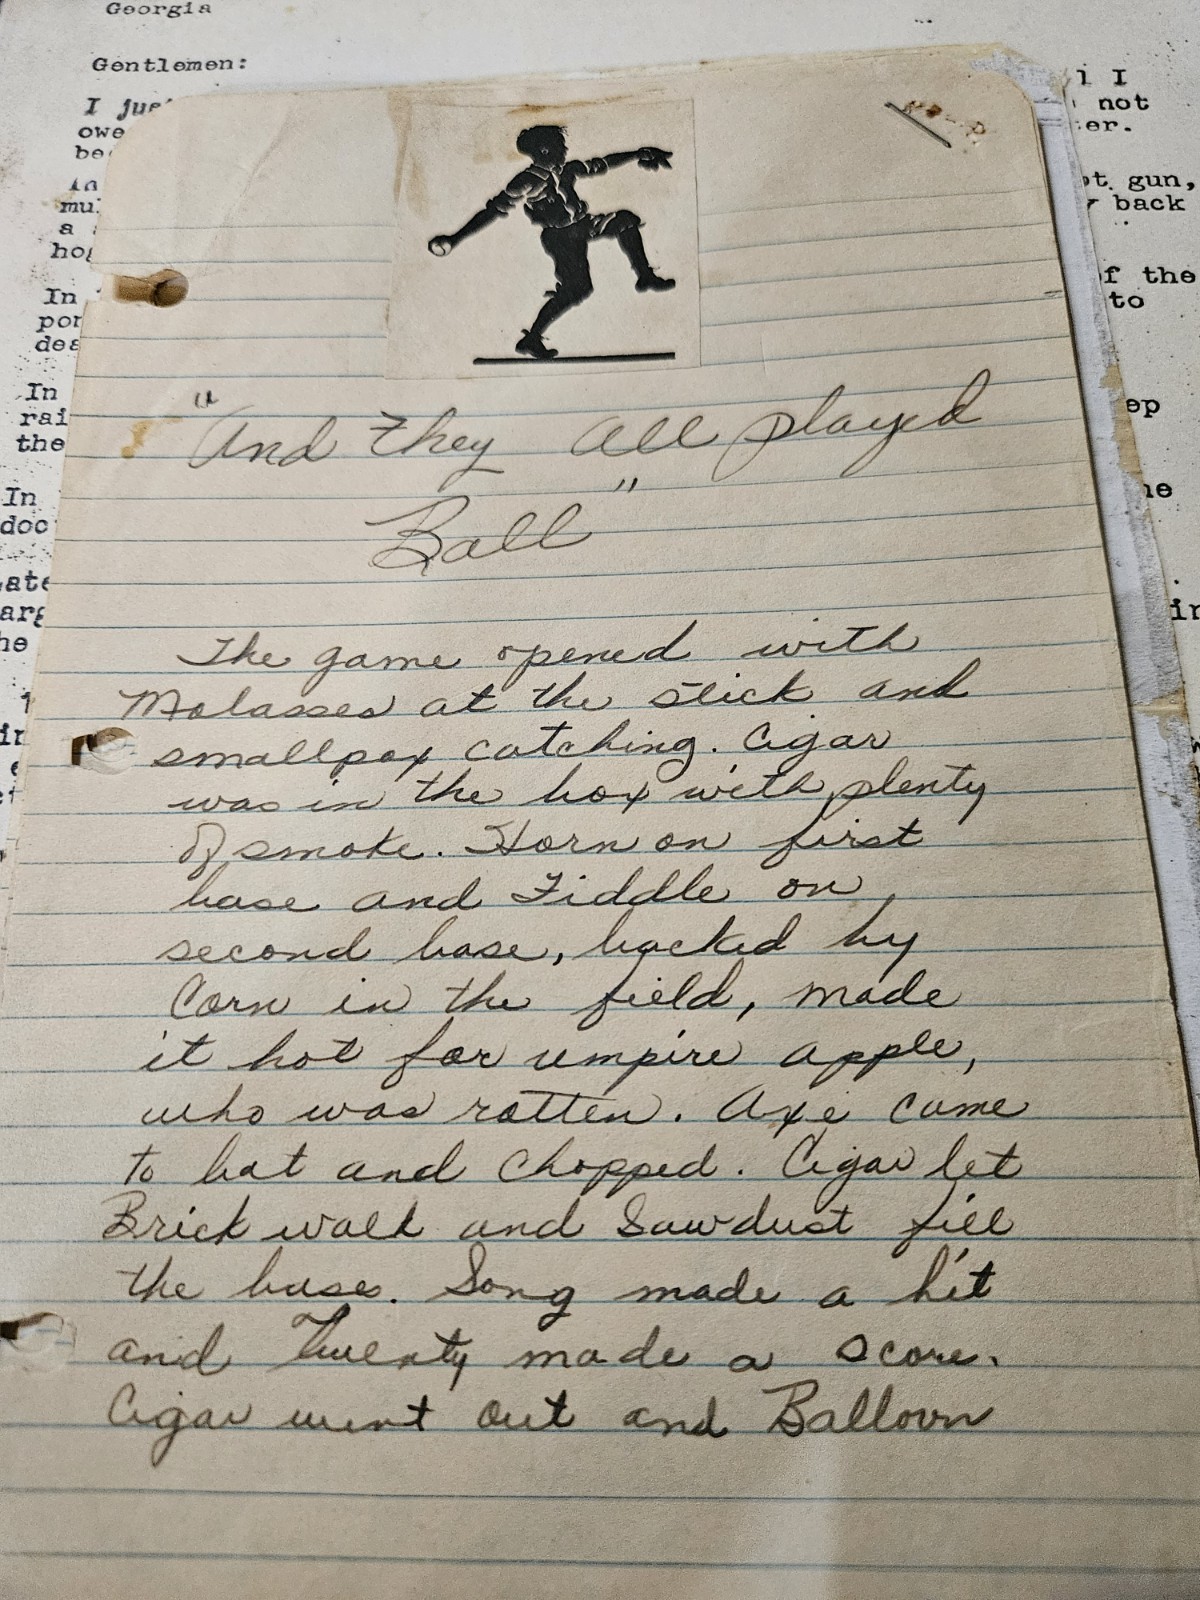 Georgia
Gentlemen:
I
owe
In
a
In
In
the
In
l I
not
gun,
back
of the
to
"And They All played
Ball"
The game opened with
Molasses at the stick and
smallpox catching. Cigar
was in the box with plenty
of smoke. Horn on first
base and Fiddle on
second base, backed by
Corn in the field, made
it hot for umpire apple,
who was rotten. Axe came
to bat and chopped. Cigar let
Brick walk and Sawdust fill
the base. Song made a hit
and Twenty made a score.
Cigar went out and Balloon